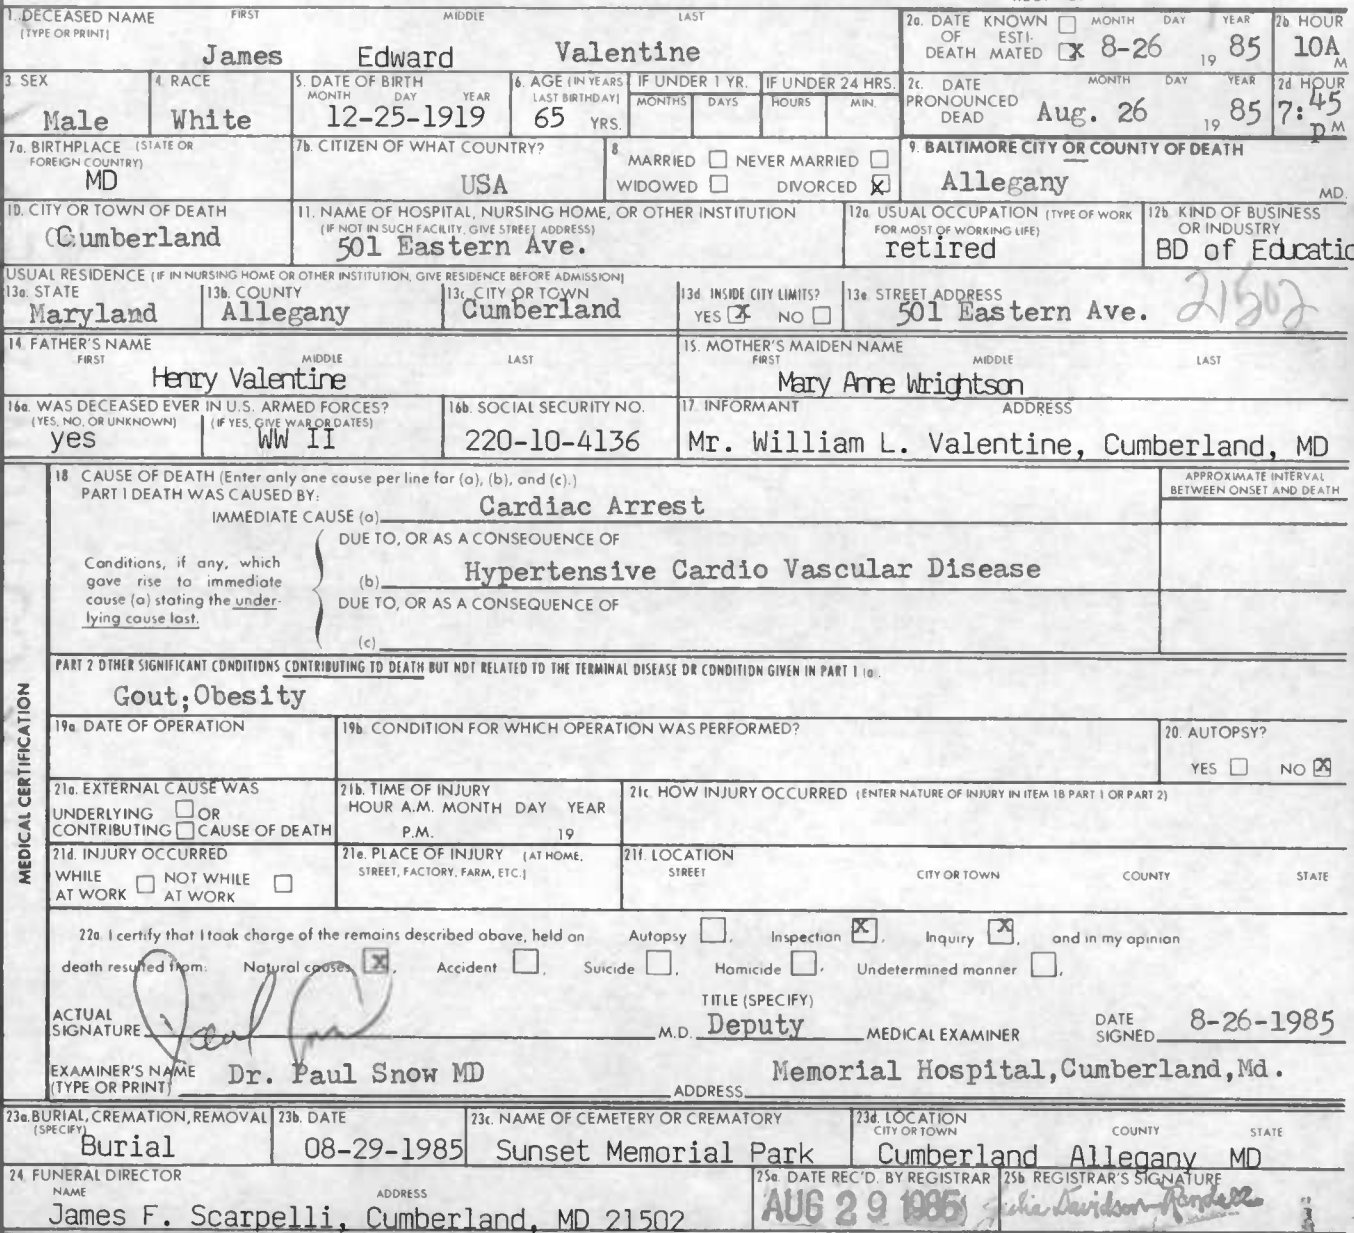 1. DECEASED NAME FIRST MIDDLE LAST
(TYPE OR PRINT)
James Edward Valentine
2a. DATE KNOWN ☐ MONTH DAY YEAR
OF ESTI-
DEATH MATED ☒ 8-26 19 85
2b. HOUR
10A M
3. SEX
Male
4. RACE
White
5. DATE OF BIRTH
MONTH DAY YEAR
12-25-1919
6. AGE (IN YEARS
LAST BIRTHDAY)
65 YRS.
IF UNDER 1 YR.
MONTHS DAYS
IF UNDER 24 HRS.
HOURS MIN.
2c. DATE MONTH DAY YEAR
PRONOUNCED
DEAD Aug. 26 19 85
2d. HOUR
7:45
p M
7a. BIRTHPLACE (STATE OR
FOREIGN COUNTRY)
MD
7b. CITIZEN OF WHAT COUNTRY?
USA
8.
MARRIED ☐ NEVER MARRIED ☐
WIDOWED ☐ DIVORCED ☒
9. BALTIMORE CITY OR COUNTY OF DEATH
Allegany
MD.
10. CITY OR TOWN OF DEATH
Cumberland
11. NAME OF HOSPITAL, NURSING HOME, OR OTHER INSTITUTION
(IF NOT IN SUCH FACILITY, GIVE STREET ADDRESS)
501 Eastern Ave.
12a. USUAL OCCUPATION (TYPE OF WORK
FOR MOST OF WORKING LIFE)
retired
12b. KIND OF BUSINESS
OR INDUSTRY
BD of Educatio
USUAL RESIDENCE (IF IN NURSING HOME OR OTHER INSTITUTION, GIVE RESIDENCE BEFORE ADMISSION)
13a. STATE
Maryland
13b. COUNTY
Allegany
13c. CITY OR TOWN
Cumberland
13d. INSIDE CITY LIMITS?
YES ☒ NO ☐
13e. STREET ADDRESS
501 Eastern Ave. 21502
14. FATHER'S NAME
FIRST MIDDLE LAST
Henry Valentine
15. MOTHER'S MAIDEN NAME
FIRST MIDDLE LAST
Mary Anne Wrightson
16a. WAS DECEASED EVER IN U.S. ARMED FORCES?
(YES, NO, OR UNKNOWN) (IF YES, GIVE WAR OR DATES)
yes WW II
16b. SOCIAL SECURITY NO.
220-10-4136
17. INFORMANT ADDRESS
Mr. William L. Valentine, Cumberland, MD
MEDICAL CERTIFICATION
18. CAUSE OF DEATH (Enter only one cause per line for (a), (b), and (c).)
PART 1 DEATH WAS CAUSED BY:
IMMEDIATE CAUSE (a) Cardiac Arrest
APPROXIMATE INTERVAL
BETWEEN ONSET AND DEATH
DUE TO, OR AS A CONSEQUENCE OF
Conditions, if any, which
gave rise to immediate
cause (a) stating the under-
lying cause last.
(b) Hypertensive Cardio Vascular Disease
DUE TO, OR AS A CONSEQUENCE OF
(c)
PART 2 OTHER SIGNIFICANT CONDITIONS CONTRIBUTING TO DEATH BUT NOT RELATED TO THE TERMINAL DISEASE OR CONDITION GIVEN IN PART 1 (a).
Gout;Obesity
19a. DATE OF OPERATION
19b. CONDITION FOR WHICH OPERATION WAS PERFORMED?
20. AUTOPSY?
YES ☐ NO ☒
21a. EXTERNAL CAUSE WAS
UNDERLYING ☐ OR
CONTRIBUTING ☐ CAUSE OF DEATH
21b. TIME OF INJURY
HOUR A.M. MONTH DAY YEAR
P.M. 19
21c. HOW INJURY OCCURRED (ENTER NATURE OF INJURY IN ITEM 18 PART 1 OR PART 2)
21d. INJURY OCCURRED
WHILE ☐ NOT WHILE ☐
AT WORK AT WORK
21e. PLACE OF INJURY (AT HOME,
STREET, FACTORY, FARM, ETC.)
21f. LOCATION
STREET CITY OR TOWN COUNTY STATE
22a. I certify that I took charge of the remains described above, held an Autopsy ☐, Inspection ☒, Inquiry ☒, and in my opinion
death resulted from: Natural causes ☒, Accident ☐, Suicide ☐, Homicide ☐, Undetermined manner ☐,
ACTUAL
SIGNATURE Paul Snow M.D.
TITLE (SPECIFY)
Deputy MEDICAL EXAMINER
DATE
SIGNED 8-26-1985
EXAMINER'S NAME
(TYPE OR PRINT) Dr. Paul Snow MD
ADDRESS Memorial Hospital,Cumberland,Md.
23a. BURIAL, CREMATION, REMOVAL
(SPECIFY)
Burial
23b. DATE
08-29-1985
23c. NAME OF CEMETERY OR CREMATORY
Sunset Memorial Park
23d. LOCATION
CITY OR TOWN COUNTY STATE
Cumberland Allegany MD
24. FUNERAL DIRECTOR
NAME ADDRESS
James F. Scarpelli, Cumberland, MD 21502
25a. DATE REC'D. BY REGISTRAR
AUG 29 1985
25b. REGISTRAR'S SIGNATURE
Julia Davidson-Randall